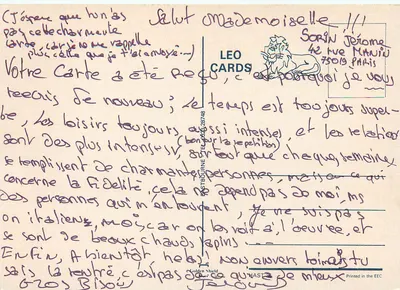 (J'espère que tu n'as
pas cette charmante
carte, car je ne me rappelle
plus celle que je t'ai envoyé...)
Salut Mademoiselle !!!
LEO
CARDS
SORIN Jérôme
42 RUE MANIN
75019 PARIS
Votre Carte a été Reçu, c'est pourquoi je vous
reecris de nouveau; Le temps est toujours super-
be, Les loisirs toujours aussi intense, et les relation
sont des plus intenses, surtout que chaque semaine
se remplissent de charmantes personnes, mais ce qui
concerne la Fidélité, cela ne dépend pas de moi, ms
des personnes qui m'entourent, Je ne suis pas
on italiens, mois, car on les voit à l'oeuvre, et
se sont de beaux chauds lapins ...
Enfin, A bientôt, hélas! non envers toi mais tu
sais la rentré, c'est pas ce qu'a de mieux
GROS BISOU Jérôme
Printed in the EEC